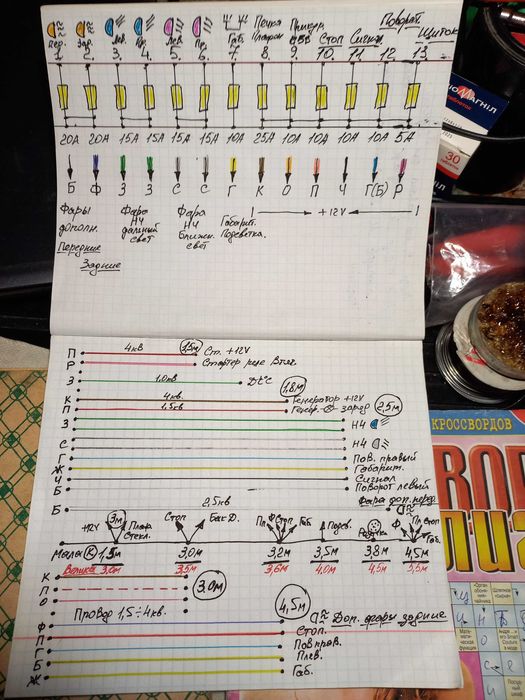 Пер. Зар. Лев. Пр. Лев. Пр. Габ. Печка Прикур. Стоп Сигнал Поворот. Щиток
1. 2. 3. 4. 5. 6. 7. 8. 9. 10. 11. 12. 13.
20А 20А 15А 15А 15А 15А 10А 25А 10А 10А 10А 10А 5А
Б Ф З З С С Г К О П Ч Г(Б) Р
Фары дополн.
Передние
Задние
Фара НЧ дальный свет
Фара НЧ ближн. свет
Габарит. Подсветка.
+12V
П 4кв 1,5м Ст. +12V
Р Стартер реле Втяг
З 1.0кв ДТС 1,8м
К 4кв. Генератор +12V
П 1.5кв Генер. заряд 2,5м
З Н4
С Н4
Г Пов. правый
Ж Габарит.
Ч Сигнал
Б Поворот левый
Б 2,5кв Фара доп. перед
+12V 3м Плаф. Стекл. Стоп Бак Д. Пп Ф Стоп Пл Габ. Подсв. Розетка Ф Пл Стоп Габ.
Мала (К) 1,5м 3,0м 3,2м 3,5м 3,8м 4,5м
Велика 3,0м 3,5м 3,6м 4,0м 4,5м 5,5м
К
П 3.0м
О
Провод 1,5÷4кв. 4,5м
Ф Доп. фары задние
П Стоп.
Г Пов прав.
Б Плев.
Ж Габ.
МАГНІЛ
таблеток
30
КРОССВОРДОВ